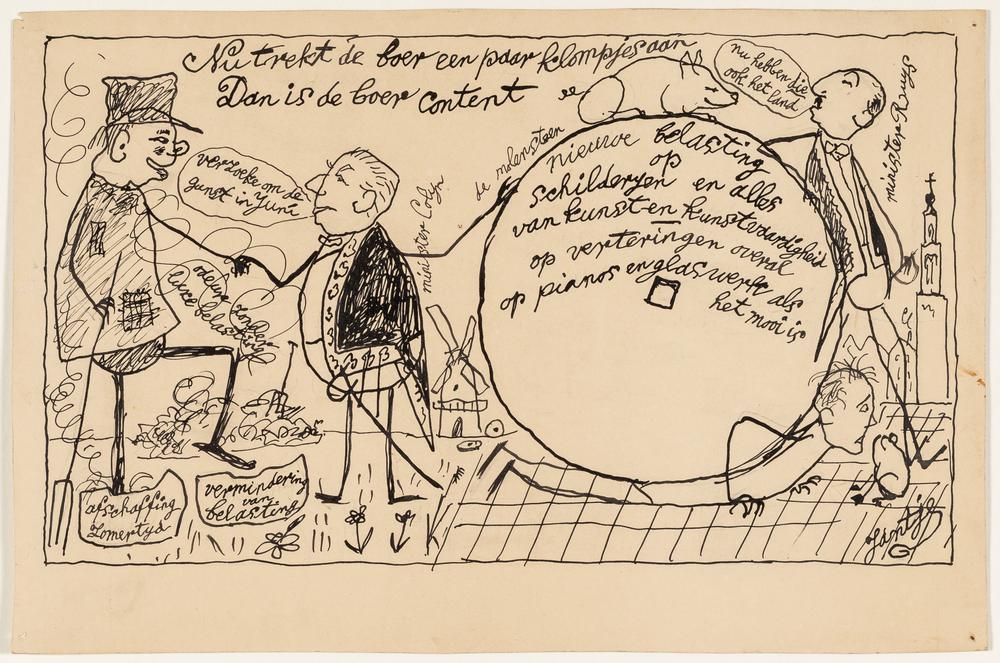 Nu trekt de boer een paar klompjes aan
Dan is de boer content
nu hebben die
ook het land
minister Ruys
verzoeke om de
gunst in Yuni
minister Colyn
de molensteen
nieuwe belasting
op
schilderyen en alles
van kunst en kunstvaardigheid
op verteringen overal
op pianos en glaswerk als
het mooi is
zonder
belasting
afschaffing
Zomertyd
vermindering
van
belasting
Jantje